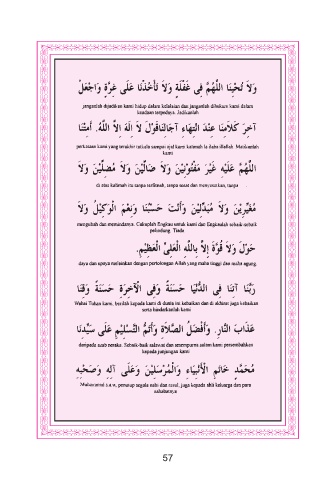 وَلاَ تُحْيِنَا اللَّهُمَّ فِي غَفْلَةٍ وَلاَ تَأْخُذْنَا عَلَى غِرَّةٍ وَاجْعَلْ
janganlah dijadikan kami hidup dalam kelalaian dan janganlah dihukum kami dalam
keadaan terpedaya. Jadikanlah
آخِرَ كَلاَمِنَا عِنْدَ انْتِهَاءِ آجَالِنَا قَوْلَ لاَ إِلَهَ إِلاَّ اللَّهُ. أَمِتْنَا
perkataan kami yang terakhir tatkala sampai ajal kami kalimah la ilaha illallah. Matikanlah
kami
اللَّهُمَّ عَلَيْهِ غَيْرَ مَفْتُونِيْنَ وَلاَ ضَالِّيْنَ وَلاَ مُضِلِّيْنَ وَلاَ
di atas kalimah itu tanpa terfitnah, tanpa sesat dan menyesatkan, tanpa
مُغَيِّرِيْنَ وَلاَ مُبَدِّلِيْنَ وَأَنْتَ حَسْبُنَا وَنِعْمَ الْوَكِيْلُ وَلاَ
mengubah dan memindanya. Cukuplah Engkau untuk kami dan Engkaulah sebaik-sebaik
pelindung. Tiada
حَوْلَ وَلاَ قُوَّةَ إِلاَّ بِاللَّهِ الْعَلِيِّ الْعَظِيْمِ.
daya dan upaya melainkan dengan pertolongan Allah yang maha tinggi dan maha agung.
رَبَّنَا آتِنَا فِي الدُّنْيَا حَسَنَةً وَفِي الْآخِرَةِ حَسَنَةً وَقِنَا
Wahai Tuhan kami, berilah kepada kami di dunia ini kebaikan dan di akhirat juga kebaikan
serta hindarkanlah kami
عَذَابَ النَّارِ. وَأَفْضَلُ الصَّلاَةِ وَأَتَمُّ التَّسْلِيْمِ عَلَى سَيِّدِنَا
daripada azab neraka. Sebaik-baik salawat dan sesempurna salam kami persembahkan
kepada junjungan kami
مُحَمَّدٍ خَاتِمِ الْأَنْبِيَاءِ وَالْمُرْسَلِيْنَ وَعَلَى آلِهِ وَصَحْبِهِ
Muhammad s.a.w, penutup segala nabi dan rasul, juga kepada ahli keluarga dan para
sahabatnya
57